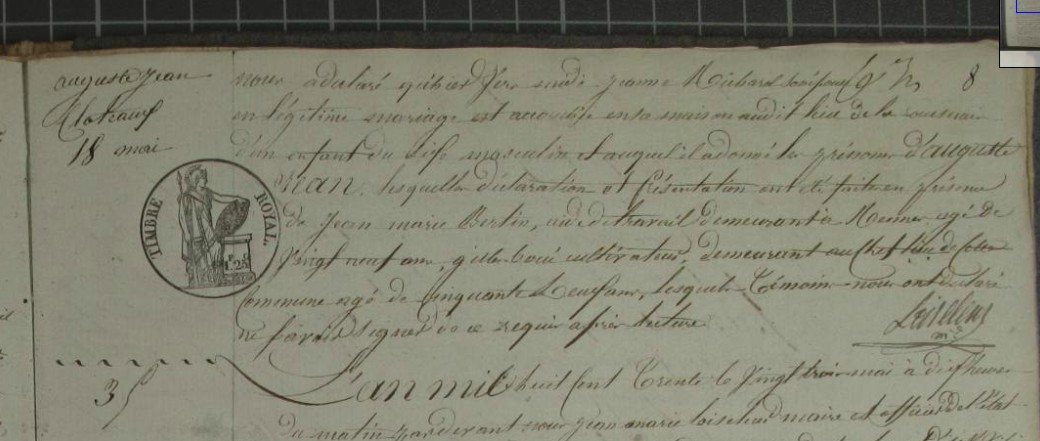 auguste Jean
18 mai
TIMBRE ROYAL
1.25
8
nous a déclaré qu'hier Jeanne Richard
en légitime mariage est accouchée en sa maison audit lieu de la
d'un enfant du sèxe masculin et auquel il a donné les prénoms d'auguste
Jean. lesquelles déclaration et présentation ont été faites en présence
de Jean marie Bertin, aide de travail demeurant à agé de
vingt neuf ans, cultivateur, demeurant au Chef lieu de cette
Commune agé de Cinquante neuf ans, lesquels Témoins nous ont déclaré
ne savoir signer de ce requis après lecture
35
L'an mil huit cent Trente le vingt trois mai à dix heures
Du matin par devant nous Jean marie maire et officier de l'état